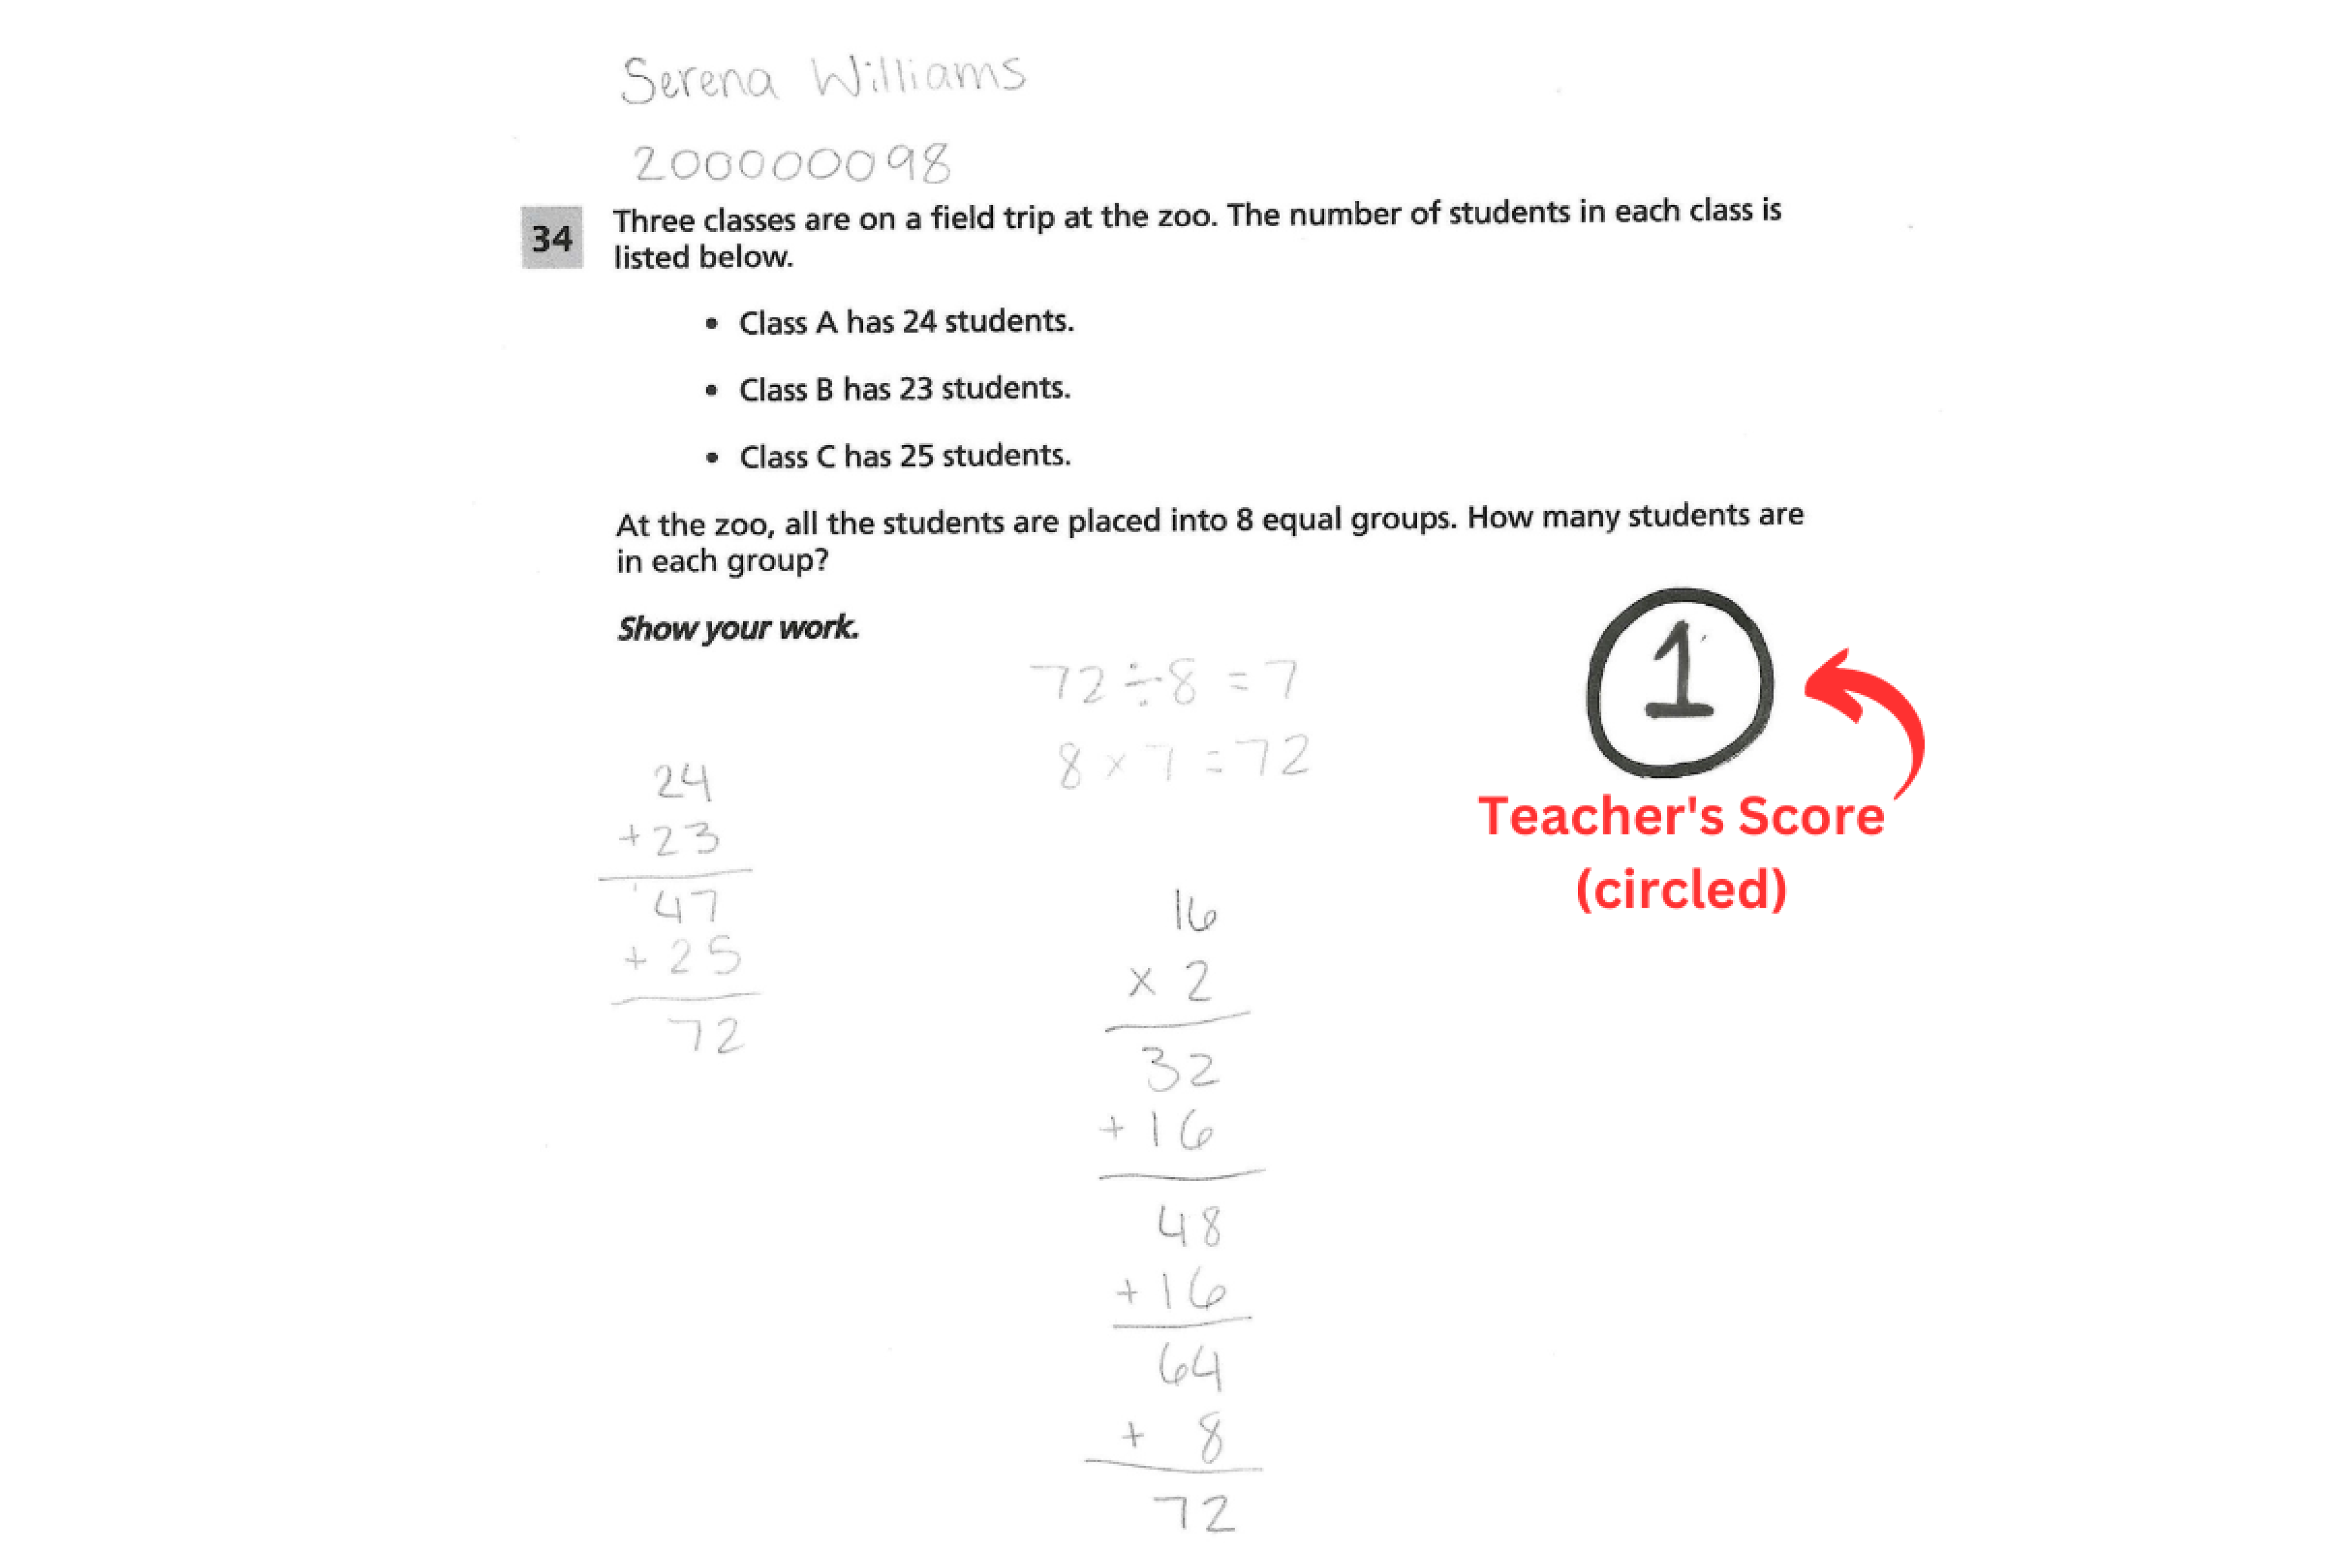 Serena Williams
200000098
34 Three classes are on a field trip at the zoo. The number of students in each class is
listed below.
• Class A has 24 students.
• Class B has 23 students.
• Class C has 25 students.
At the zoo, all the students are placed into 8 equal groups. How many students are
in each group?
Show your work.
72 ÷ 8 = 7
8 x 7 = 72
24
+23
47
+ 25
72
16
x 2
32
+ 16
48
+ 16
64
+ 8
72
1
Teacher's Score
(circled)